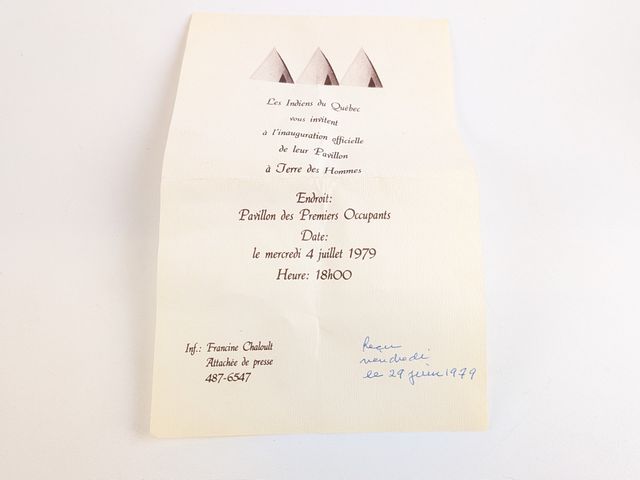 Les Indiens du Québec
vous invitent
à l'inauguration officielle
de leur Pavillon
à Terre des Hommes
Endroit:
Pavillon des Premiers Occupants
Date:
le mercredi 4 juillet 1979
Heure: 18h00
Inf.: Francine Chaloult
Attachée de presse
487-6547
Reçu
vendredi
le 29 juin 1979